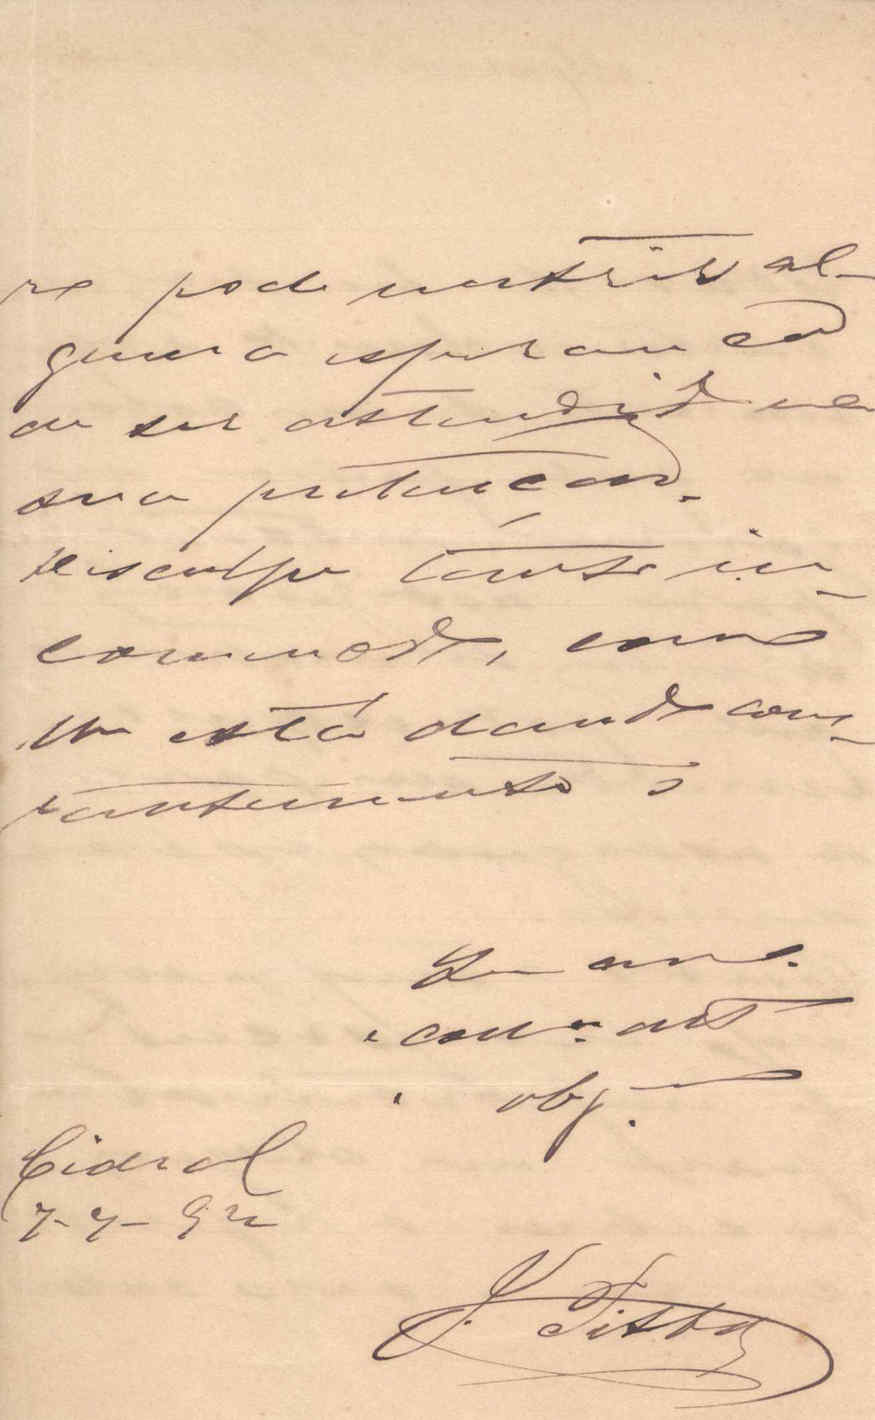 re pode nutrir al-
guma esperança
de ser attendido na
sua pretenção.
Desculpe tanto in-
commodo, como
lhe está dando cons-
tantemente o
De am.
e coll.ª att
e obg.
Cidral
7-7-92
J. Tisba